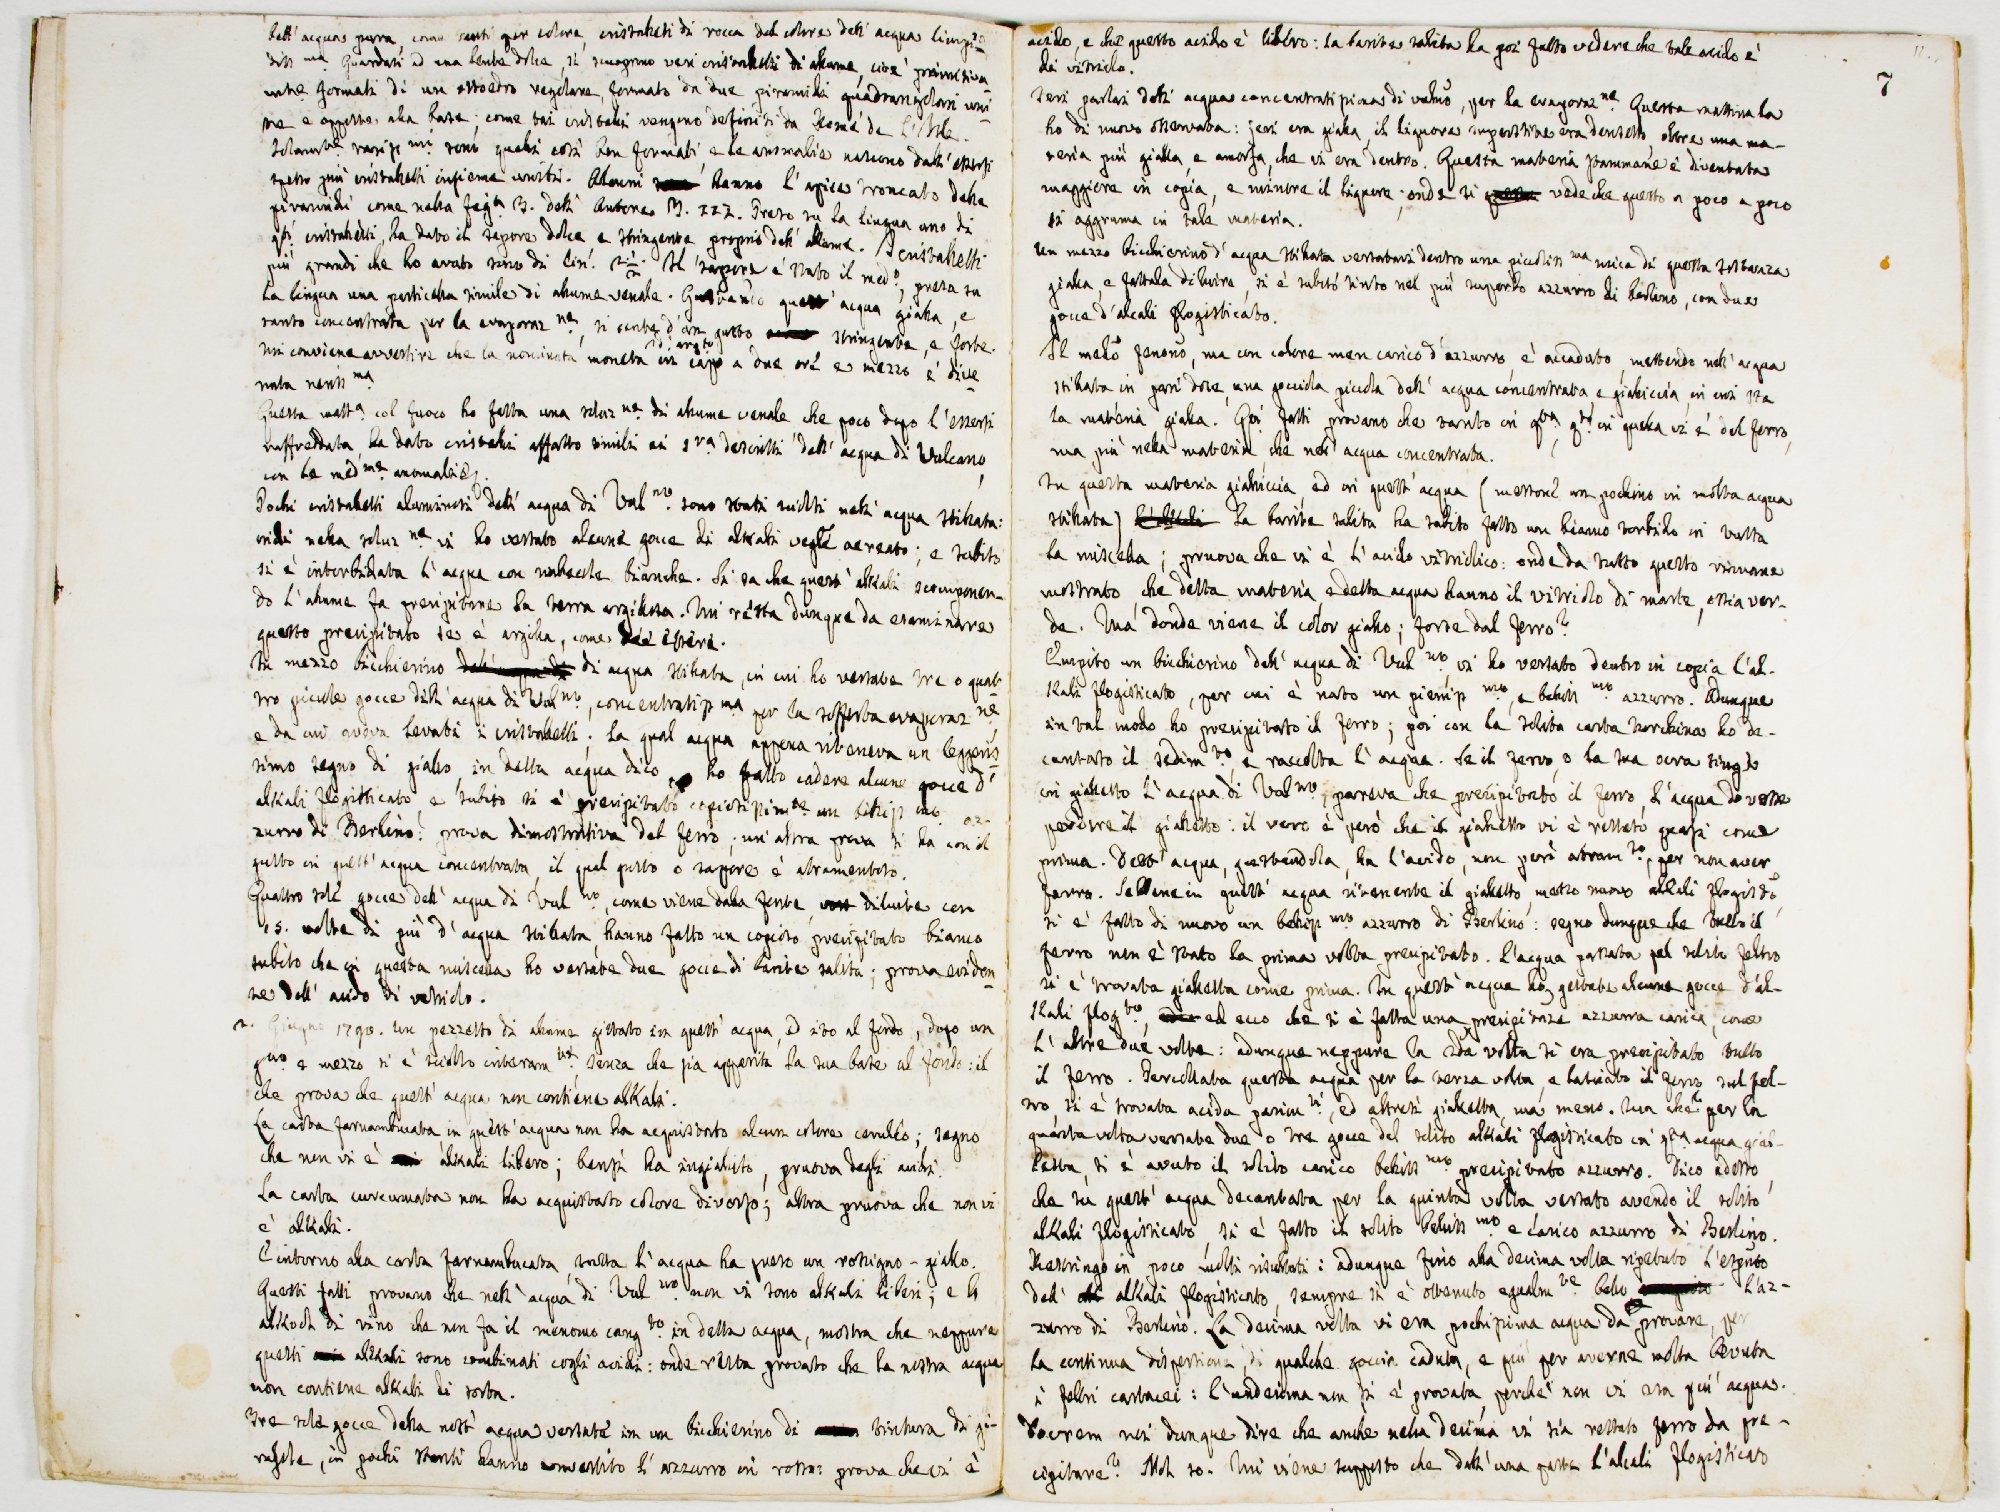 dell'acqua pura, come tanti per colore cristalleti di rocca del colore dell'acqua limpi-
diss.ma Guardati ad una lente dolce, si scuoprono veri cristalletti di alume, cioè primitiva-
mte formati di un ottoedro regolare, formato da due piramidi quadrangolari uni-
te e opposte alla base; come tai cristalli vengono definiti da Romé de l'Isle.
Solamte rarissmi sono quelli così ben formati, e le anomalie nascono dall'essersi
spesso più cristalletti insieme uniti. Alcuni hanno l'apice troncato delle
piramidi come nella figa 3. dell'Autore. Preso su la lingua uno di
qsti cristalletti, ha dato il sapore dolce e stringente proprio dell'alume. I cristalletti
più grandi che ho avuto sono di lin. 2 1/2. Il sapore è stato il medo, presa su
la lingua una particella simile di alume venale. Gustando quest'acqua gialla, e
tanto concentrata per la evaporazne, si sente d'un gusto stringente, e forte.
Mi conviene avvertire che la nominata moneta d'argto in capo a due ore e mezzo è dive-
nuta neriss.ma
Questa matta col fuoco ho fatta una soluzne di alume venale che poco dopo l'essersi
raffreddata, ha dato cristalli affatto simili ai sra descritti dell'acqua di Vulcano,
con le medme anomalie.
Pochi cristalletti aluminosi dell'acqua di Valno sono stati sciolti nell'acqua stillata:
indi nella soluzne vi ho versato alcune gocce di alkali vegle aereato; e subito
si è intorbidata l'acqua con nubecole bianche. Si sa che quest'alkali scomponen-
do l'alume fa precipitare la terra argillosa. Mi resta dunque da esaminare
questo precipitato se è argilla, come dee essere.
In mezzo bicchierino di acqua stillata, in cui ho versate tre o quat-
tro piccole gocce dell'acqua di Valno, concentratissma per la sofferta evaporazne,
e da cui aveva levati i cristalletti; la qual acqua appena riteneva un leggeris-
simo segno di giallo, in della acqua dico, ho fatto cadere alcune gocce d'
alkali flogisticato e subito si è precipitato copiosissimte un bellissmo az-
zurro di Berlino: prova dimostrativa del ferro; un'altra prova si ha con il
gusto in quest'acqua concentrata, il qual gusto o sapore è atramentoso.
Quattro sole gocce dell'acqua di Valno come viene dalla fonte, diluite con
15. volte di più d'acqua stillata, hanno fatto un copioso precipitato bianco
subito che in questa miscella ho versate due gocce di barite salita; prova eviden-
te dell'acido di vetriolo.
2. Giugno 1790. Un pezzetto di alume gittato in quest'acqua, ed ito al fondo, dopo un
gno e mezzo si è sciolto interamte senza che sia apparita la sua base al fondo: il
che prova che quest'acqua non contiene alkali.
La carta farnambucata in quest'acqua non ha acquistato alcun colore ceruleo; segno
che non vi è alkali libero; bensì ha ingiallito, pruova degli acidi.
La carta curcumata non ha acquistato colore diverso; altra pruova che non vi
è alkali.
E intorno alla carta farnambucata, tutta l'acqua ha preso un rossigno-giallo.
Questi fatti provano che nell'acqua di Valno non vi sono alkali liberi; e lo
alkool di vino che non fa il menomo cangto in della acqua, mostra che neppure
questi alkali sono combinati cogli acidi: onde resta provato che la nostra acqua
non contiene alkali di sorta.
Tre sole gocce della nosta acqua versate in un bicchierino di tintura di gi-
rasole, in pochi istanti hanno convertito l'azzurro in rosso: prova che vi è
7
acido, e che questo acido è libero: la barite salita ha poi fatto vedere che tale acido è
di vitriolo.
Ieri parlai dell'acqua concentratissima di valno, per la evaporazne. Questa mattina la
ho di nuovo osservata: Ieri era gialla, il liquore superstite era densetto oltre una ma-
teria più gialla, e amorfa, che vi era dentro. Questa materia stammane è diventata
maggiore in copia, e minore il liquore; onde si vede che questo a poco a poco
si aggruma in tale materia.
Un mezzo bicchierino d'acqua stillata versatavi dentro una piccoliss.ma mica di questa sostanza
gialla, e fattala diluire, si è subito tinto nel più superbo azzurro di Berlino, con due
gocce d'alcali flogisticato.
Il medo fenono, ma con colore men carico d'azzurro è accaduto, mettendo nell'acqua
stillata in pari dose, una gocciola piccola dell'acqua concentrata e gialliccia, in cui sta
la materia gialla. Qsti fatti provano che tanto in qsta, qto in quella vi è del ferro,
ma più nella materia che nell'acqua concentrata.
In questa materia gialliccia, ed in quest'acqua (messone un pochino in molta acqua
stillata) la barite salita ha subito fatto un bianco torbido in tutta
la miscella; pruova che vi è l'acido vitriolico: onde da tutto questo rimane
mostrato che detta materia e detta acqua hanno il vitriolo di marte, ossia ver-
de. Ma donde viene il color giallo; forse dal ferro?
Empito un bicchierino dell'acqua di Valno, vi ho versato dentro in copia l'al-
kali flogisticato, per cui è nato un pienissmo, e bellissmo azzurro. Dunque
in tal modo ho precipitato il ferro; poi con la solita carta turchina ho de-
cantato il sedimto, e raccolta l'acqua. Se il ferro, o la sua ocra tinge
in gialletto l'acqua di Valno, pareva che precipitato il ferro, l'acqua dovesse
perdere il gialletto: il vero è però che il gialletto vi è restato quasi come
prima. Dett'acqua, gustandola, ha l'acido, non però atramto, per non aver
ferro. Sebbene in quest'acqua ritenente il gialletto, messo nuovo alkali flogisto,
si è fatto di nuovo un bellissmo azzurro di Berlino: segno dunque che tutto il
ferro non è stato la prima volta precipitato. L'acqua passata pel solito feltro
si è trovata gialletta come prima. In quest'acqua ho gettate alcune gocce d'al-
kali flogto, ed ecco che si è fatta una precipitaze azzurra carica, come
l'altre due volte: adunque neppure la 2da volta si era precipitato tutto
il ferro. Percollata questa acqua per la terza volta, e lasciato il ferro sul fel-
tro, si è trovata acida parimti, ed altresì gialletta, ma meno. Ma che? per la
quarta volta versate due o tre gocce del solito alkali flogisticato in qsta acqua gial-
letta, si è avuto il solito carico belliss.mo precipitato azzurro. Dico adesso,
che su quest'acqua decantata per la quinta volta versato avendo il solito
alkali flogisticato, si è fatto il solito belliss.mo e carico azzurro di Berlino.
Restringo in poco molti risultati: adunque fino alla decima volta ripetuto l'esprto
dell' alkali flogisticato, sempre si è ottenuto egualmte bello l'az-
zurro di Berlino. La decima volta vi era pochissima acqua da provare, per
la continua dispersione di qualche goccia caduta, e più per averne molta bevuta
i feltri cartacei: l'undecima non si è provata, perché non vi era più acqua.
Dovrem noi dunque dire che anche nella decima vi sia restato ferro da pre-
cipitare? Nol so. Mi viene sospetto che dall'una parte l'alcali flogisticato